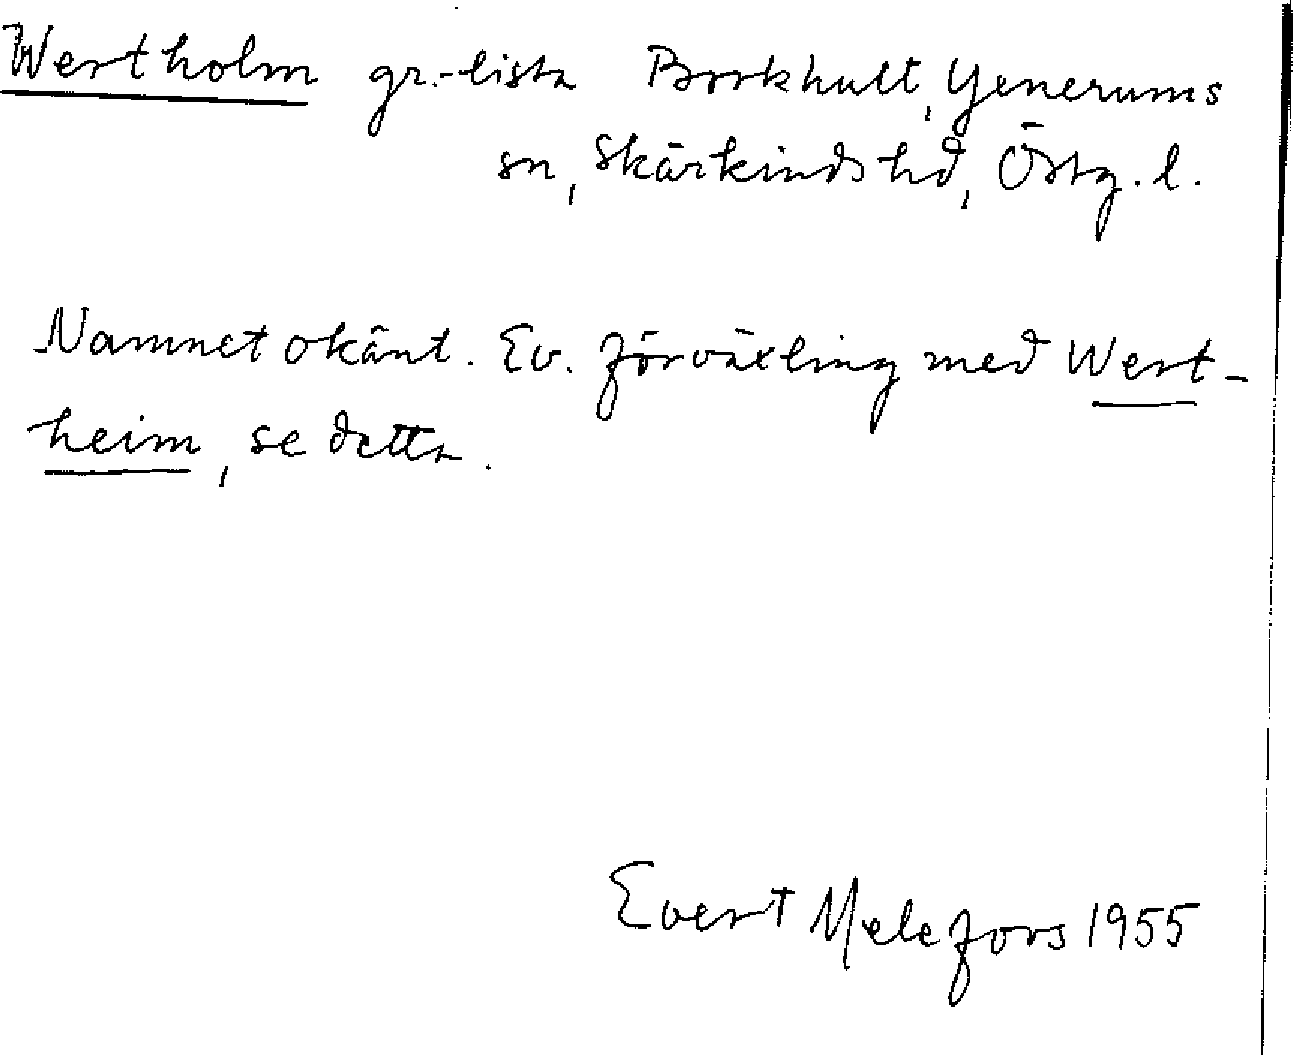 Wertholm gr.-lista Borkhult, Yxnerums
sn, Skärkinds hd, Östg. l.
Namnet okänt. Ev. förväxling med Wert-
heim, se detta.
Evert Melefors 1955